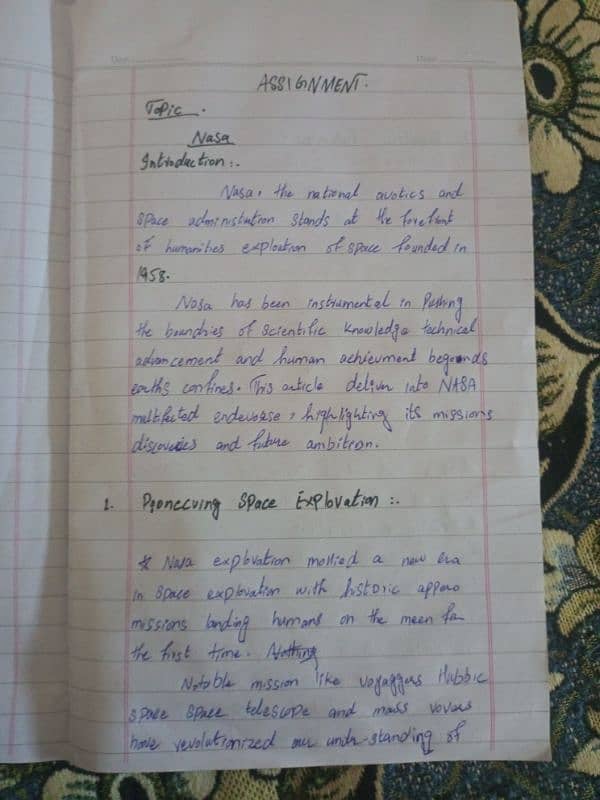 Date
Date
ASSIGNMENT.
Topic.
Nasa
Introduction:-
Nasa, the national avotics and
space administration stands at the forefront
of humanities exploation of space founded in
1958.
Nasa has been instrumental in Pushng
the boundries of scientific knowledge technical
advancement and human achievment begeonds
earths confines. This article deliver into NASA
multfected endevorse, highlighting its missions
discoveries and future ambition.
1. Pioneering Space Exploration:-
* Nasa exploration mollied a new era
in space exploration with historic appero
missions landing humans on the meen for
the first time. Nothing
Notoble mission like voyaggers Hubbic
space space telescope and mass rovers
have revolutionized our undr-standing of